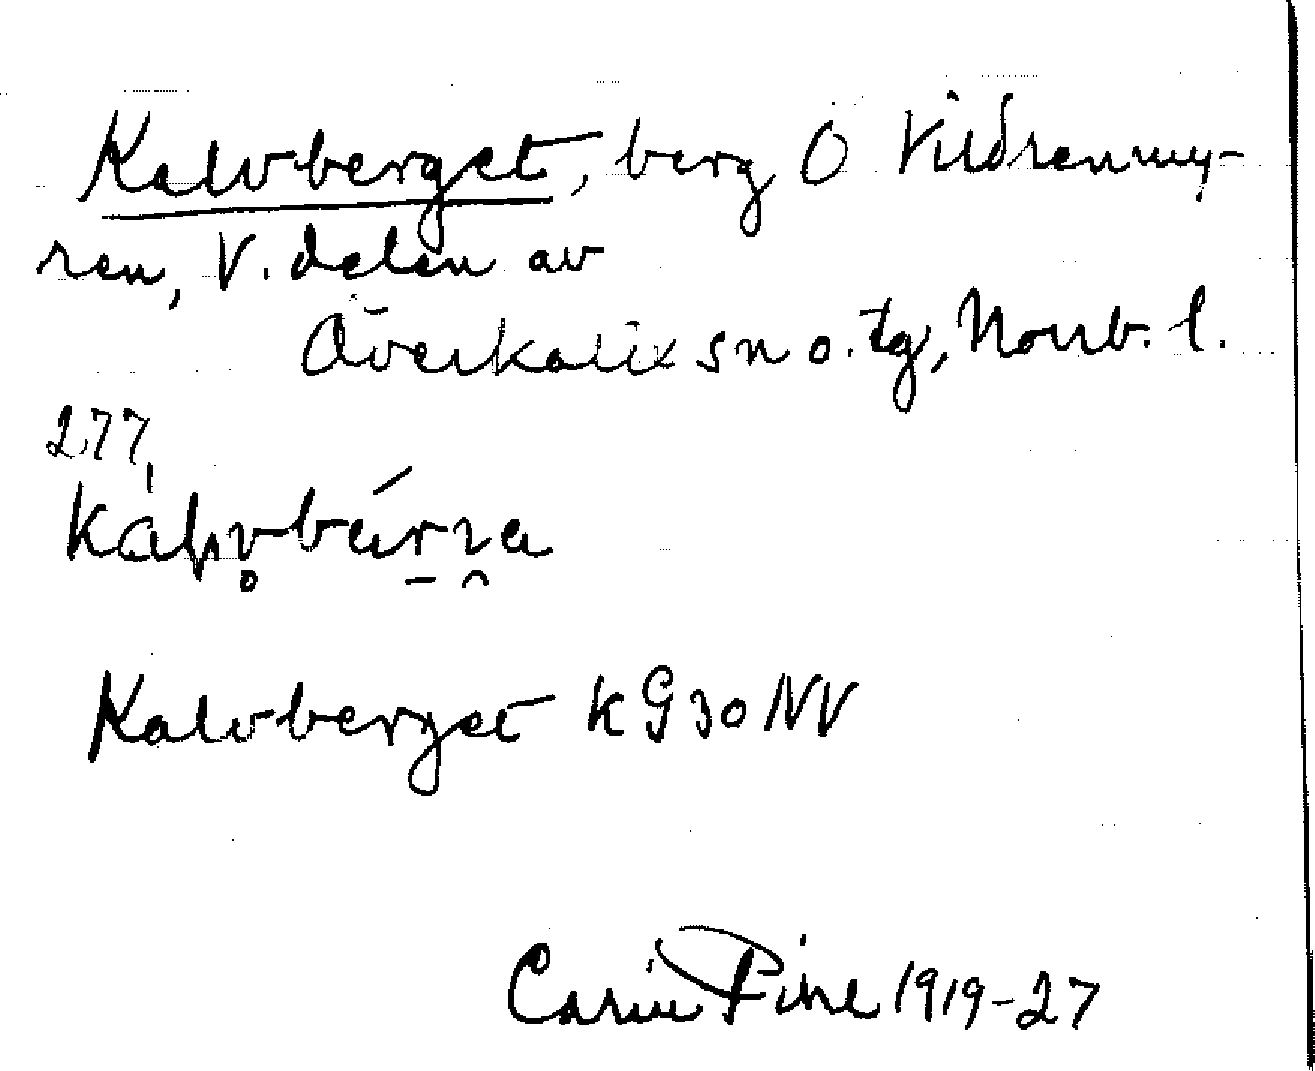 Kalvberget, berg O Vildrenmy-
ren, V. delen av
Överkalix sn o. tg, Norrb. l.
277,
Kalvberget KG 30 NV
Carin Pihl 1919-27